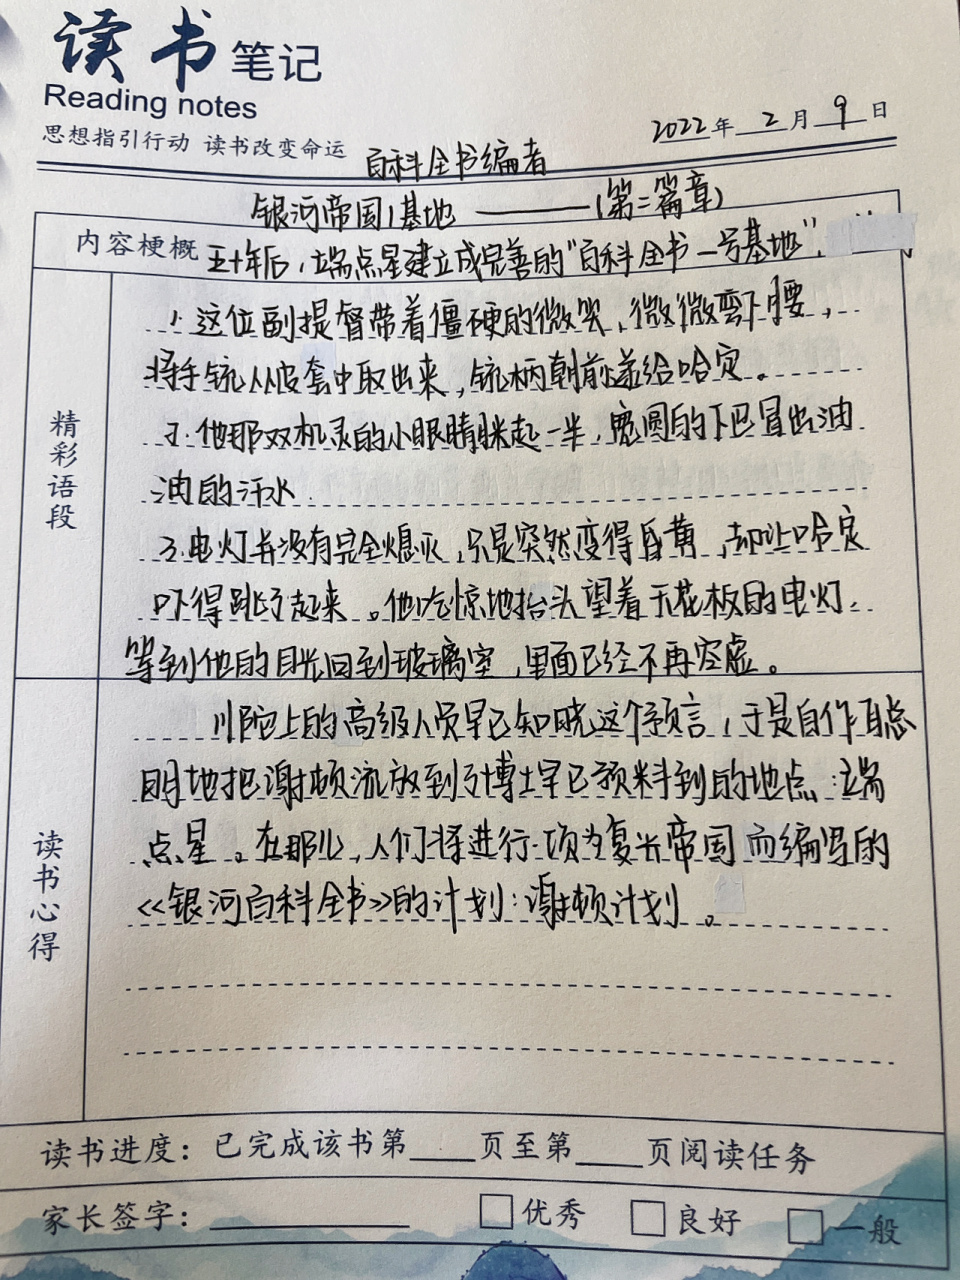 读书笔记
Reading notes
思想指引行动 读书改变命运
2022年2月9日
百科全书编者
银河帝国1基地 ———(第二篇章)
内容梗概 五十年后,端点星建立成完善的“百科全书一号基地”.
精彩语段
1.这位副提督带着僵硬的微笑,微微弯下腰,
将手铳从皮套中取出来,铳柄朝前递给哈定。
2.他那双机灵的小眼睛眯起一半,宽圆的下巴冒出油
油的汗水.
3.电灯并没有完全熄灭,只是突然变得昏黄,却让哈定
吓得跳了起来。他吃惊地抬头望着天花板的电灯.
等到他的目光回到玻璃室,里面已经不再空虚。
读书心得
川陀上的高级人员早已知晓这个预言,于是自作聪
明地把谢顿流放到了博士早已预料到的地点:端
点星。在那儿,人们将进行一项为复兴帝国而编写的
《银河百科全书》的计划:谢顿计划。
读书进度:已完成该书第____页至第____页阅读任务
家长签字:________ □优秀 □良好 □一般